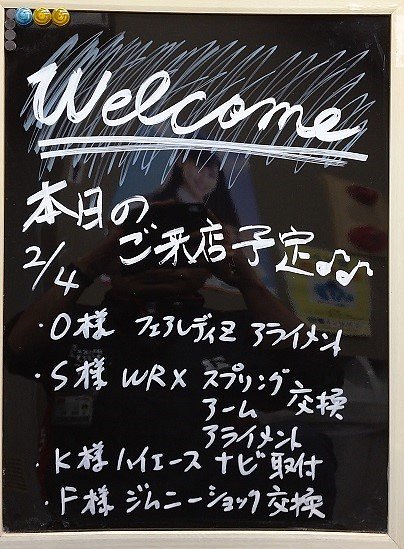 Welcome
本日の
2/4 ご来店予定♪♪
・O様 フェアレディZ アライメント
・S様 WRX スプリング
アーム 交換
アライメント
・K様 ハイエース ナビ取付
・F様 ジムニーショック交換